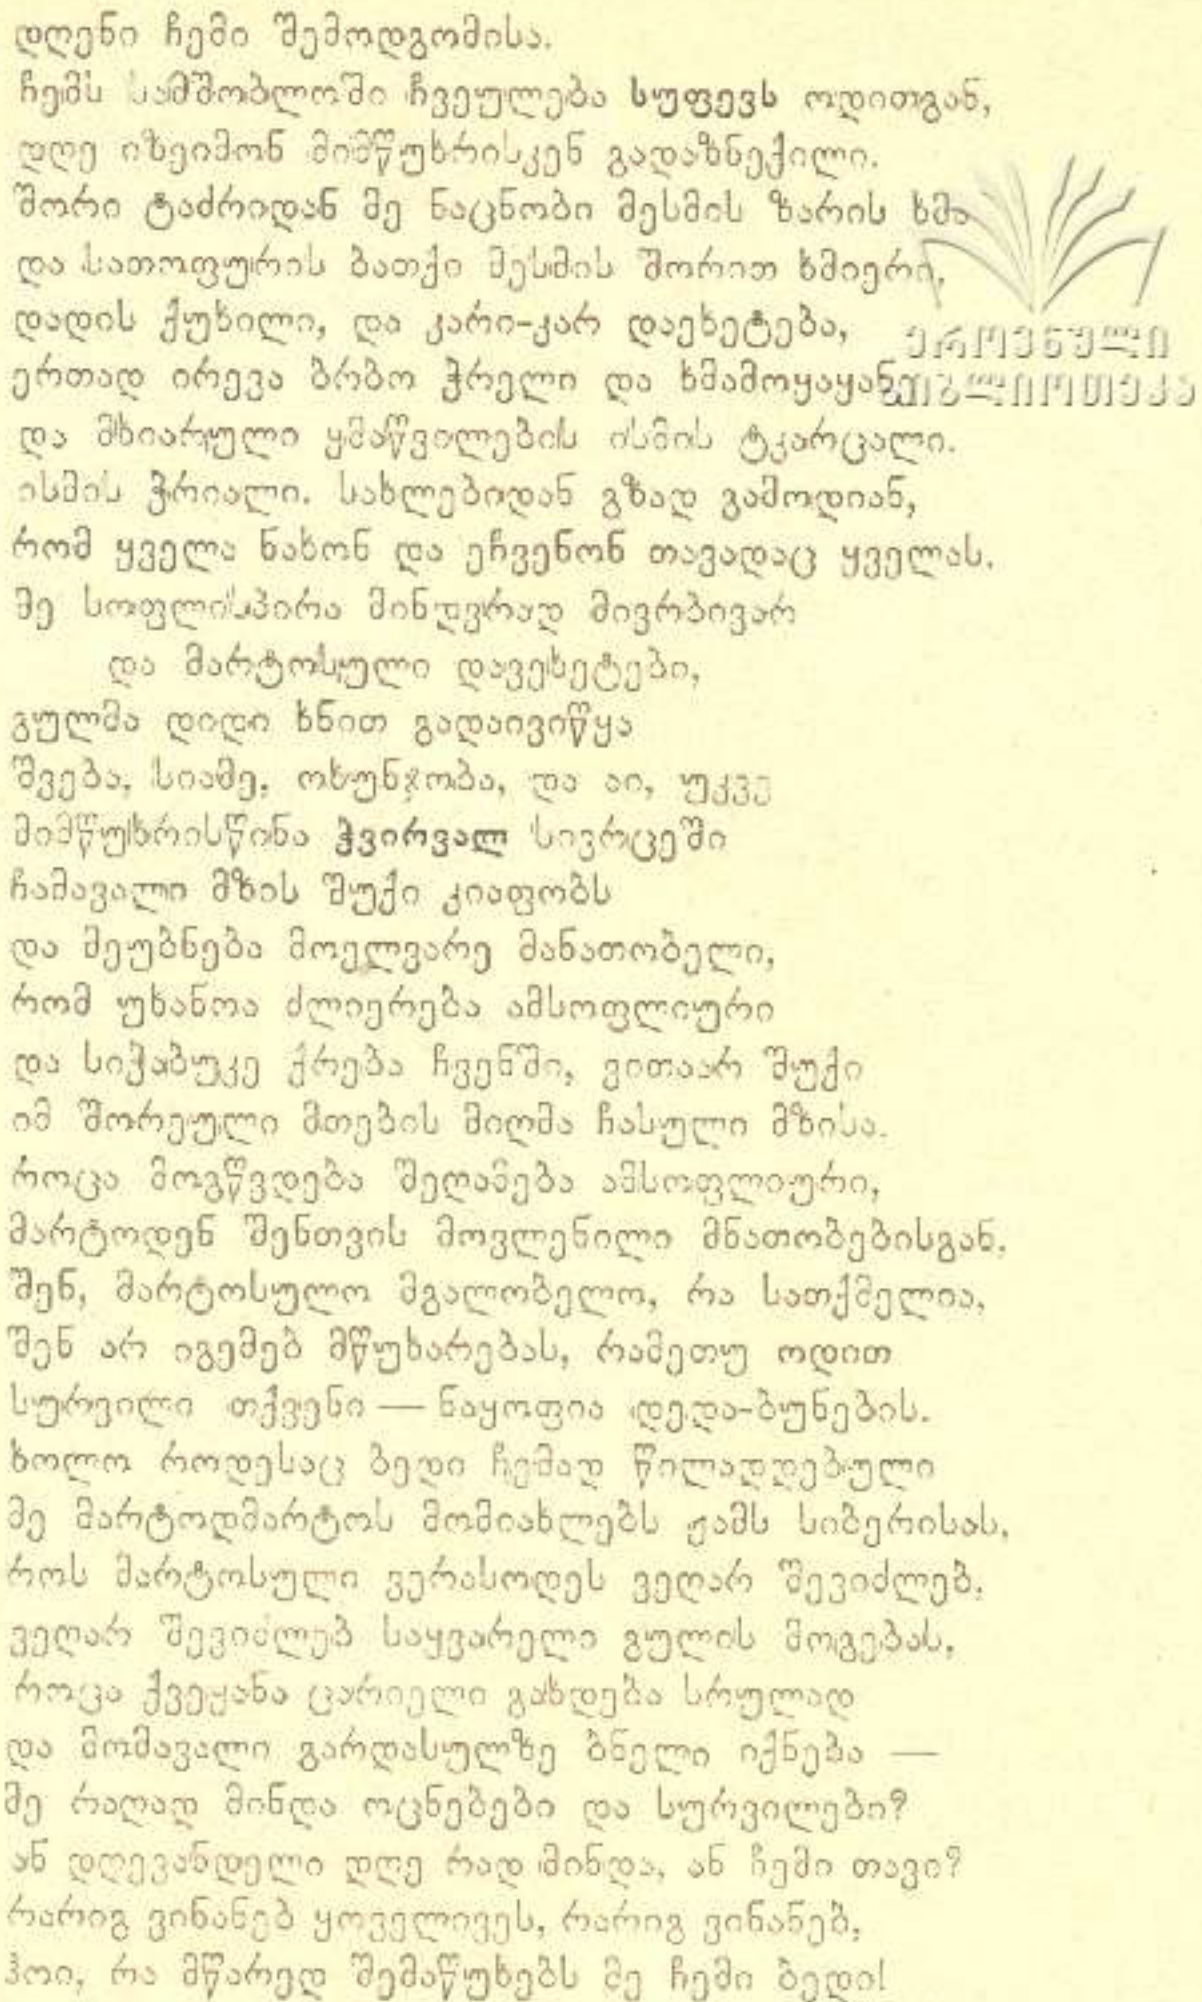 დღენი ჩემი შემოდგომისა.
ჩემს სამშობლოში ჩვეულება სუფევს ოდითგან,
დღე იზეიმონ მიმწუხრისკენ გადაზნექილი.
შორი ტაძრიდან მე ნაცნობი მესმის ზარის ხმა
და სათოფურის ბათქი მესმის შორით ხმიერი,
დადის ქუხილი, და კარი-კარ დაეხეტება,
ერთად ირევა ბრბო ჭრელი და ხმამოყაყანე
და მხიარული ყმაწვილების ისმის ტკარცალი.
ისმის ჭრიალი. სახლებიდან გზად გამოდიან,
რომ ყველა ნახონ და ეჩვენონ თავადაც ყველას.
მე სოფლისპირა მინდვრად მივრბივარ
და მარტოსული დავეხეტები,
გულმა დიდი ხნით გადაივიწყა
შვება, სიამე, ოხუნჯობა, და აი, უკვე
მიმწუხრისწინა ჭვირვალ სივრცეში
ჩამავალი მზის შუქი კიაფობს
და მეუბნება მოელვარე მანათობელი,
რომ უხანოა ძლიერება ამსოფლიური
და სიჭაბუკე ქრება ჩვენში, ვითაარ შუქი
იმ შორეული მთების მიღმა ჩასული მზისა.
როცა მოგწვდება შეღამება ამსოფლიური,
მარტოდენ შენთვის მოვლენილი მნათობებისგან,
შენ, მარტოსულო მგალობელო, რა სათქმელია,
შენ არ იგემებ მწუხარებას, რამეთუ ოდით
სურვილი თქვენი — ნაყოფია დედა-ბუნების.
ხოლო როდესაც ბედი ჩემად წილადდებული
მე მარტოდმარტოს მომიახლებს ჟამს სიბერისას,
როს მარტოსული ვერასოდეს ვეღარ შევიძლებ,
ვეღარ შევიძლებ საყვარელი გულის მოგებას,
როცა ქვეყანა ცარიელი გახდება სრულად
და მომავალი გარდასულზე ბნელი იქნება —
მე რაღად მინდა ოცნებები და სურვილები?
ან დღევანდელი დღე რად მინდა, ან ჩემი თავი?
რარიგ ვინანებ ყოველივეს, რარიგ ვინანებ,
ჰოი, რა მწარედ შემაწუხებს მე ჩემი ბედი!
ეროვნული
ბიბლიოთეკა